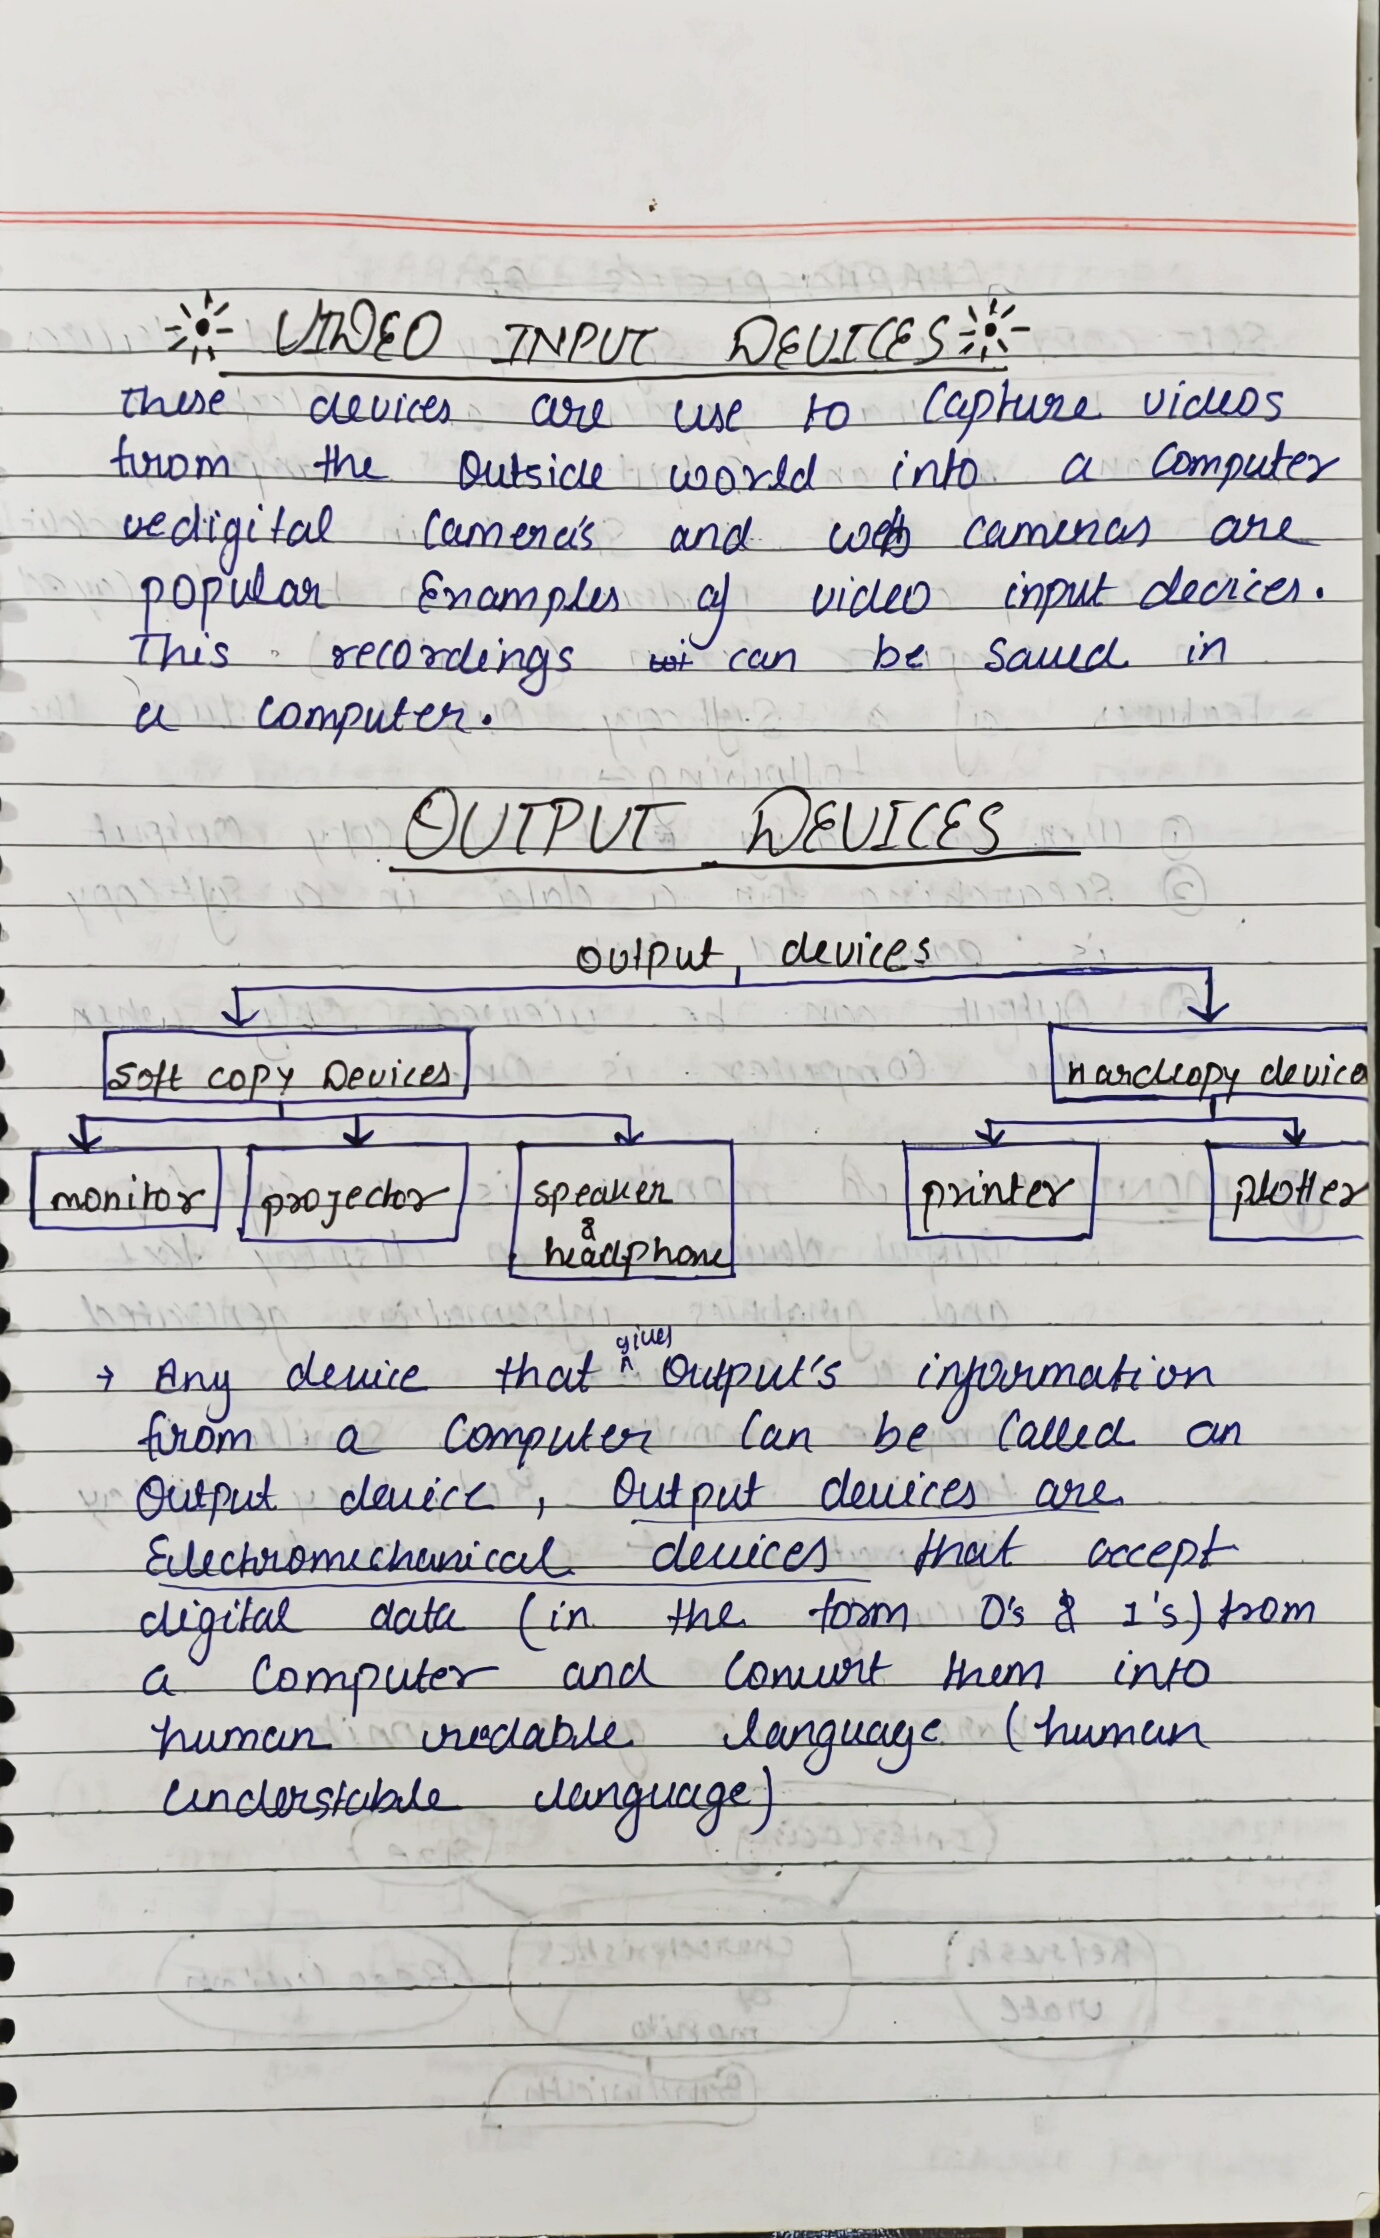 VIDEO INPUT DEVICES
These devices are use to Capture videos
from the Outside world into a Computer
vedigital Camera's and web cameras are
popular Examples of video input devices.
This recordings can be Saved in
a Computer.
OUTPUT DEVICES
output devices
Soft copy Devices Hardcopy device
monitor projector speaker & headphone printer plotter
→ Any device that gives Output's information
from a Computer Can be Called an
Output device, Output devices are
Electromechanical devices that accept
digital data (in the form 0's & 1's) from
a Computer and Convert them into
human redable language (human
Understable language)